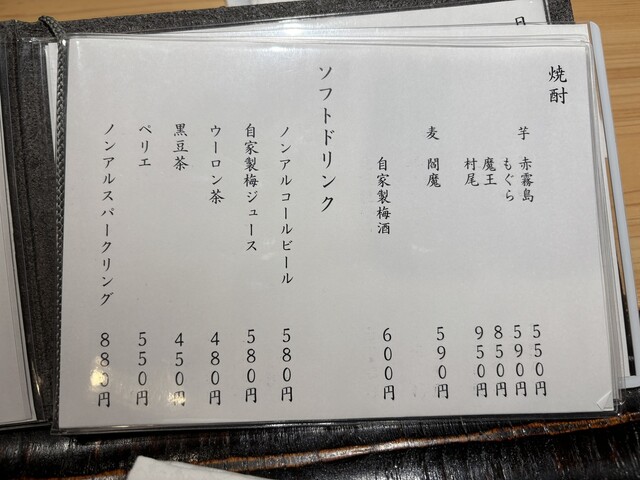 焼酎
芋 赤霧島 550円
もぐら 590円
魔王 850円
村尾 950円
麦 閻魔 590円
自家製梅酒 600円
ソフトドリンク
ノンアルコールビール 580円
自家製梅ジュース 580円
ウーロン茶 480円
黒豆茶 450円
ペリエ 550円
ノンアルスパークリング 880円